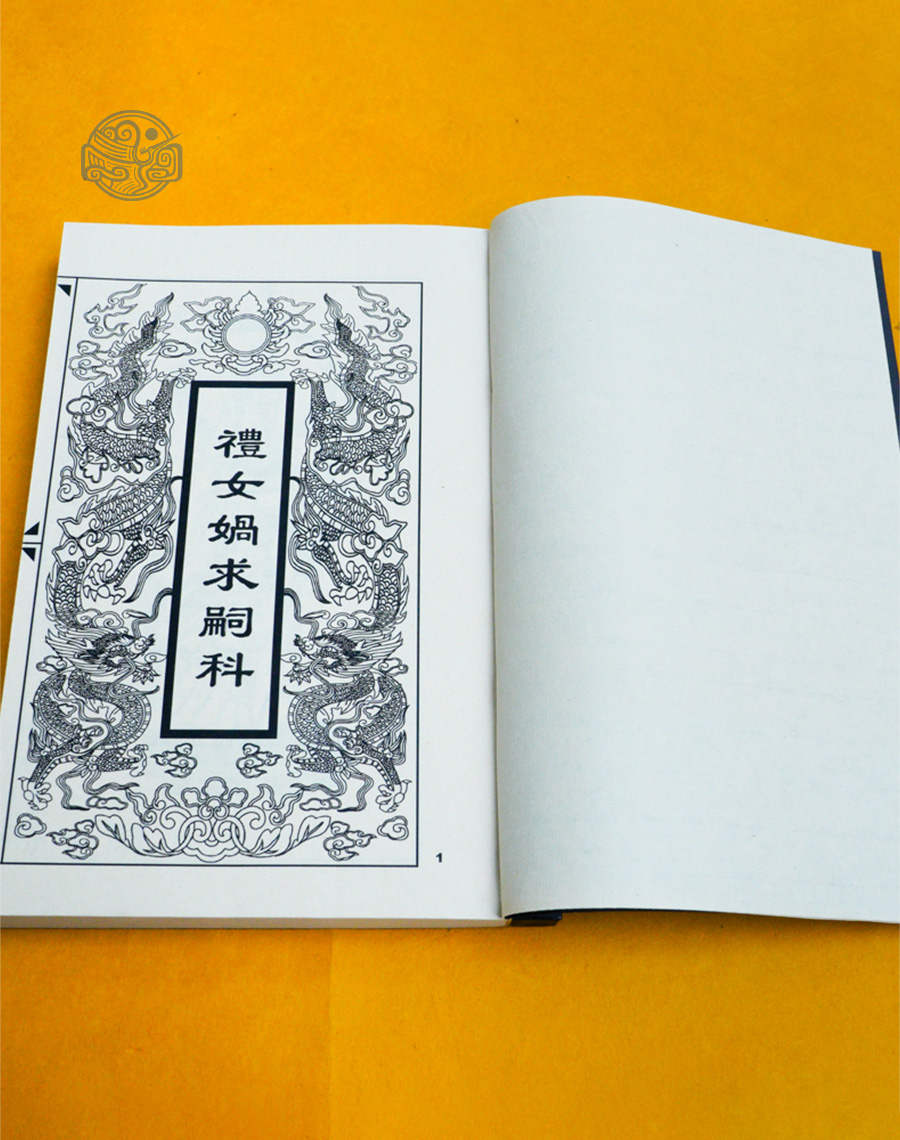 禮女媧求嗣科
1